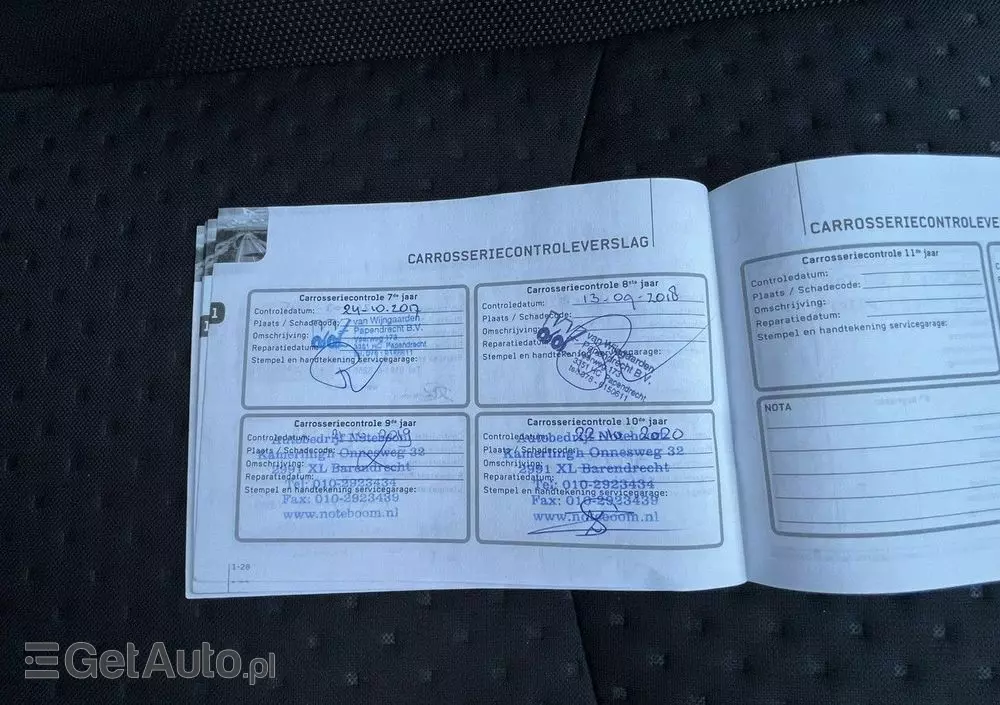 CARROSSERIECONTROLEVERSLAG
Carrosseriecontrole 7de jaar
Controledatum: 24-10-2017
Plaats / Schadecode:
Omschrijving:
Reparatiedatum:
Stempel en handtekening servicegarage:
van Wijngaarden
Papendrecht B.V.
Veerweg 173
3351 HC Papendrecht
Carrosseriecontrole 8ste jaar
Controledatum: 13-09-2018
Plaats / Schadecode:
Omschrijving:
Reparatiedatum:
Stempel en handtekening servicegarage:
van Wijngaarden
Papendrecht B.V.
Veerweg 173
3351 HC Papendrecht
tel. 078 - 6150611
Carrosseriecontrole 9de jaar
Controledatum: 2019
Plaats / Schadecode:
Omschrijving:
Reparatiedatum:
Stempel en handtekening servicegarage:
Autobedrijf Noteboom
Kamerlingh Onnesweg 32
2991 XL Barendrecht
Tel: 010-2923434
Fax: 010-2923439
www.noteboom.nl
Carrosseriecontrole 10de jaar
Controledatum: 22 2020
Plaats / Schadecode:
Omschrijving:
Reparatiedatum:
Stempel en handtekening servicegarage:
Autobedrijf Noteboom
Kamerlingh Onnesweg 32
2991 XL Barendrecht
Tel: 010-2923434
Fax: 010-2923439
www.noteboom.nl
1-28
1
1
CARROSSERIECONTROLEVE
Carrosseriecontrole 11de jaar
Controledatum:
Plaats / Schadecode:
Omschrijving:
Reparatiedatum:
Stempel en handtekening servicegarage:
NOTA
GetAuto.pl